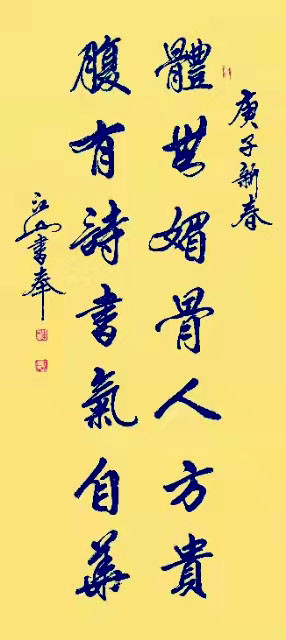 庚子新春
體無媚骨人方貴
腹有詩書氣自華
江書奉